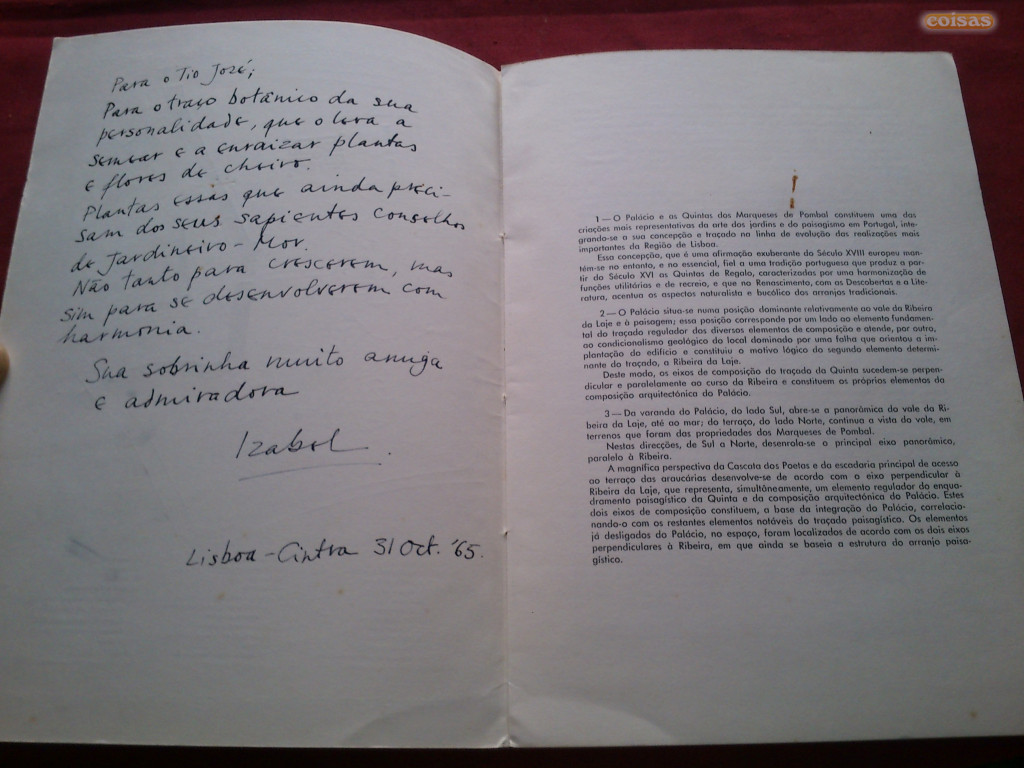 coisas
Para o Tio José;
Para o traço botânico da sua
personalidade, que o leva a
semear e a enraizar plantas
e flores de cheiro.
Plantas essas que ainda preci-
sam dos seus sapientes conselhos
de Jardineiro-Mor.
Não tanto para crescerem, mas
sim para se desenvolverem com
harmonia.
Sua sobrinha muito amiga
e admiradora
Izabel
Lisboa-Cintra 31 Oct. '65.
1 — O Palácio e as Quintas dos Marqueses de Pombal constituem uma das
criações mais representativas da arte dos jardins e do paisagismo em Portugal, inte-
grando-se a sua concepção e traçado na linha de evolução das realizações mais
importantes da Região de Lisboa.
Essa concepção, que é uma afirmação exuberante do Século XVIII europeu man-
têm-se no entanto, e no essencial, fiel a uma tradição portuguesa que produz a par-
tir do Século XVI as Quintas de Regalo, caracterizadas por uma harmonização de
funções utilitárias e de recreio, e que no Renascimento, com os Descobertas e a Lite-
ratura, acentua os aspectos naturalista e bucólico dos arranjos tradicionais.
2 — O Palácio situa-se numa posição dominante relativamente ao vale da Ribeira
da Laje e à paisagem; essa posição corresponde por um lado ao elemento fundamen-
tal do traçado regulador dos diversos elementos de composição e atende, por outro,
ao condicionalismo geológico do local dominado por uma falha que orientou a im-
plantação do edifício e constituiu o motivo lógico do segundo elemento determi-
nante do traçado, a Ribeira da Laje.
Deste modo, os eixos de composição do traçado da Quinta sucedem-se perpen-
dicular e paralelamente ao curso da Ribeira e constituem os próprios elementos da
composição arquitectónica do Palácio.
3 — Da varanda do Palácio, do lado Sul, abre-se a panorâmica do vale da Ri-
beira da Laje, até ao mar; do terraço, do lado Norte, continua a vista do vale, em
terrenos que foram das propriedades dos Marqueses de Pombal.
Nestas direcções, de Sul a Norte, desenrola-se o principal eixo panorâmico,
paralelo à Ribeira.
A magnífica perspectiva da Cascata dos Poetas e da escadaria principal de acesso
ao terraço das araucárias desenvolve-se de acordo com o eixo perpendicular à
Ribeira da Laje, que representa, simultâneamente, um elemento regulador do enqua-
dramento paisagístico da Quinta e da composição arquitectónica do Palácio. Estes
dois eixos de composição constituem, a base da integração do Palácio, correlacio-
nando-o com os restantes elementos notáveis do traçado paisagístico. Os elementos
já desligados do Palácio, no espaço, foram localizados de acordo com os dois eixos
perpendiculares à Ribeira, em que ainda se baseia a estrutura do arranjo paisa-
gístico.